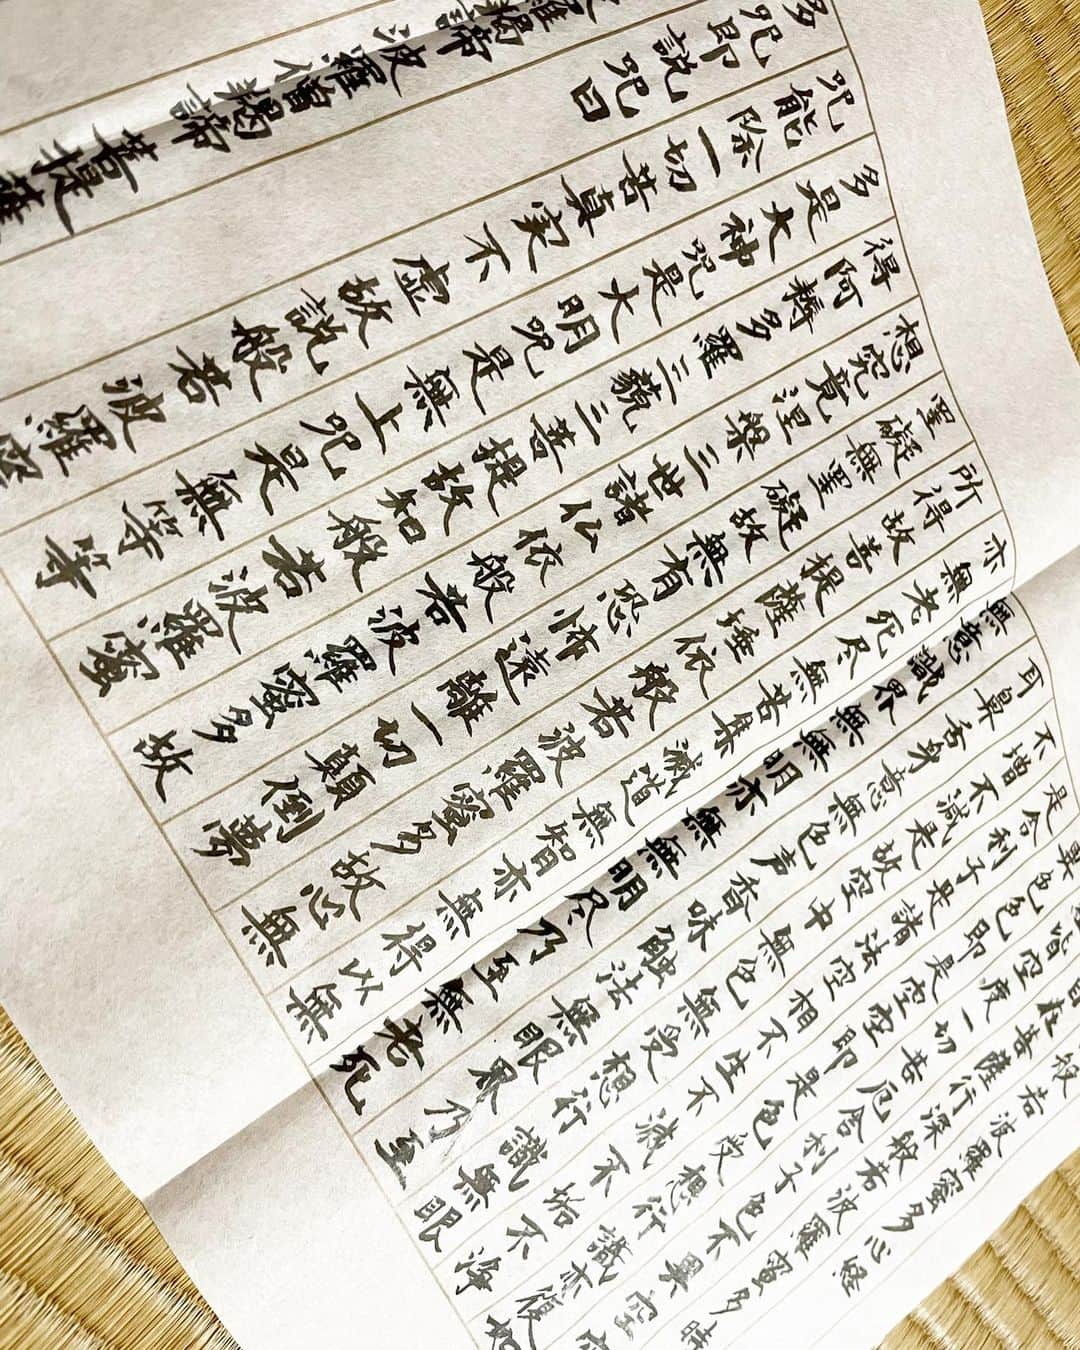 般若波羅蜜多心経
在菩薩行深般若波羅蜜多時
皆空度一切苦厄舎利子色不異空
異色色即是空空即是色受想行識亦復如
是舎利子是諸法空相不生不滅不垢不浄
不増不減是故空中無色無受想行識無眼
耳鼻舌身意無色声香味触法無眼界乃至
無意識界無無明亦無無明尽乃至無老死
亦無老死尽無苦集滅道無智亦無得以無
所得故菩提薩埵依般若波羅蜜多故心無
罣礙無罣礙故無有恐怖遠離一切顛倒夢
想究竟涅槃三世諸仏依般若波羅蜜多故
得阿耨多羅三藐三菩提故知般若波羅蜜
多是大神呪是大明呪是無上呪是無等等
呪能除一切苦真実不虚故説般若波羅蜜
多呪即説呪曰
羅羯諦波羅僧羯諦菩提薩